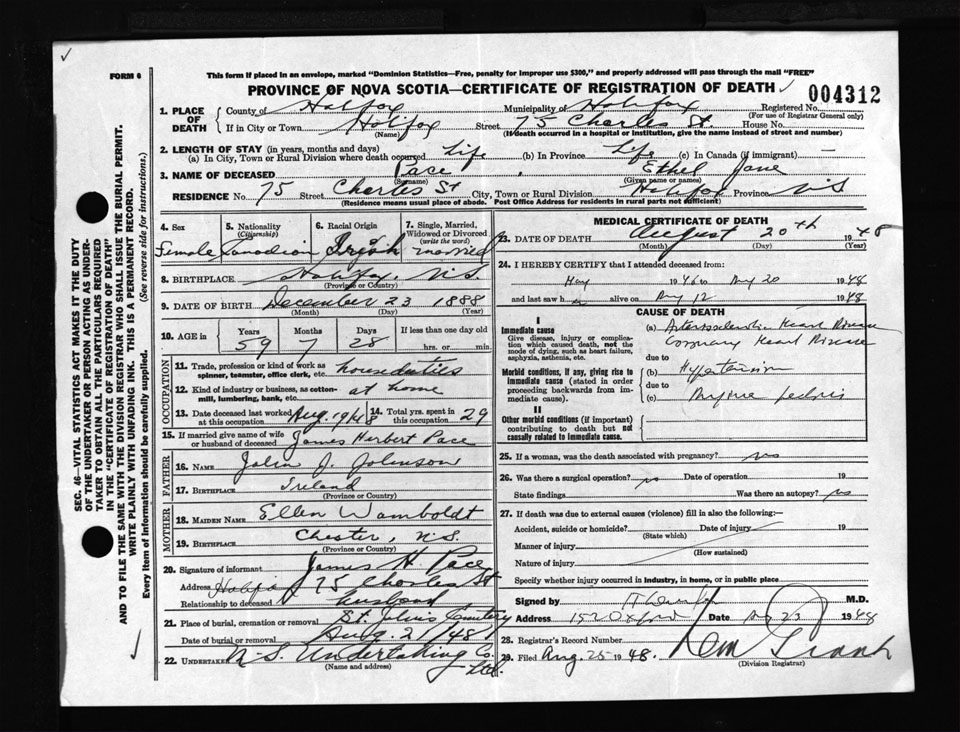 FORM 6
This form if placed in an envelope, marked "Dominion Statistics—Free, penalty for improper use $300," and properly addressed will pass through the mail "FREE"
PROVINCE OF NOVA SCOTIA—CERTIFICATE OF REGISTRATION OF DEATH
004312
1. PLACE OF DEATH
County of Halifax Municipality of Halifax Registered No.
(For use of Registrar General only)
If in City or Town Halifax Street 75 Charles St. House No.
(Name) (If death occurred in a hospital or institution, give the name instead of street and number)
2. LENGTH OF STAY (in years, months and days)
(a) In City, Town or Rural Division where death occurred Life (b) In Province Life (c) In Canada (if immigrant) —
3. NAME OF DECEASED Pace, Ethel Jane
(Surname) (Given name or names)
RESIDENCE No. 75 Street Charles St City, Town or Rural Division Halifax Province N.S
(Residence means usual place of abode. Post Office Address for residents in rural parts not sufficient)
SEC. 46—VITAL STATISTICS ACT MAKES IT THE DUTY
OF THE UNDERTAKER OR PERSON ACTING AS UNDER-
TAKER TO OBTAIN ALL THE PARTICULARS REQUIRED
IN THE "CERTIFICATE OF REGISTRATION OF DEATH"
AND TO FILE THE SAME WITH THE DIVISION REGISTRAR WHO SHALL ISSUE THE BURIAL PERMIT.
WRITE PLAINLY WITH UNFADING INK. THIS IS A PERMANENT RECORD.
Every item of Information should be carefully supplied. (See reverse side for instructions.)
4. Sex 5. Nationality (Citizenship) 6. Racial Origin 7. Single, Married, Widowed or Divorced (write the word)
Female Canadian Irish married
8. BIRTHPLACE Halifax, N.S
(Province or Country)
9. DATE OF BIRTH December 23 1888
(Month) (Day) (Year)
10. AGE in Years Months Days If less than one day old
59 7 28 hrs. or min.
OCCUPATION
11. Trade, profession or kind of work as spinner, teamster, office clerk, etc. house duties
12. Kind of industry or business, as cotton-mill, lumbering, bank, etc. at home
13. Date deceased last worked at this occupation Aug. 1948 14. Total yrs. spent in this occupation 29
15. If married give name of wife or husband of deceased James Herbert Pace
FATHER
16. NAME John J. Johnson
17. BIRTHPLACE Ireland
(Province or Country)
MOTHER
18. MAIDEN NAME Ellen Wamboldt
19. BIRTHPLACE Chester, N.S.
(Province or Country)
20. Signature of informant James H. Pace
Address Halifax 75 Charles St
Relationship to deceased husband
21. Place of burial, cremation or removal St. John's Cemetery
Date of burial or removal Aug. 21/48
22. UNDERTAKER N.S. Undertaking Co. Ltd.
(Name and address)
MEDICAL CERTIFICATE OF DEATH
23. DATE OF DEATH August 20th 1948
(Month) (Day) (Year)
24. I HEREBY CERTIFY that I attended deceased from:
May 1946 to Aug 20 1948
and last saw h alive on Aug 12 1948
CAUSE OF DEATH
I
Immediate cause
Give disease, injury or complication which caused death, not the mode of dying, such as heart failure, asphyxia, asthenia, etc.
(a) Arteriosclerotic Heart Disease
Coronary Heart Disease
due to
Morbid conditions, if any, giving rise to immediate cause (stated in order proceeding backwards from immediate cause).
(b) Hypertension
due to
(c) pectoris
II
Other morbid conditions (if important) contributing to death but not causally related to immediate cause.
25. If a woman, was the death associated with pregnancy? no
26. Was there a surgical operation? no Date of operation 19
State findings Was there an autopsy? no
27. If death was due to external causes (violence) fill in also the following:—
Accident, suicide or homicide? Date of injury 19
(State which)
Manner of injury
(How sustained)
Nature of injury
Specify whether injury occurred in industry, in home, or in public place
Signed by M.D.
Address 152 Oxford Date Aug 23 1948
28. Registrar's Record Number
29. Filed Aug. 25 1948.
(Division Registrar)